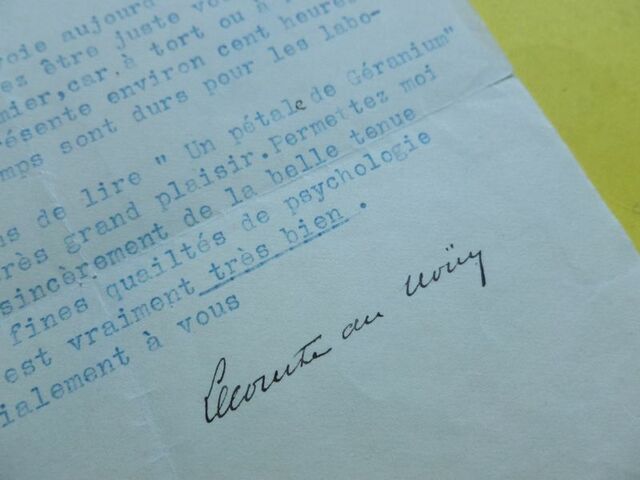 voie aujourd
ez être juste vou
mier,car à tort ou à
présente environ cent heures
mps sont durs pour les labo-
ns de lire " Un pétale de Géranium"
rès grand plaisir.Permettez moi
sincèrement de la belle tenue
fines quailtés de psychologie
est vraiment très bien .
ialement à vous
Lecomte du Noüy